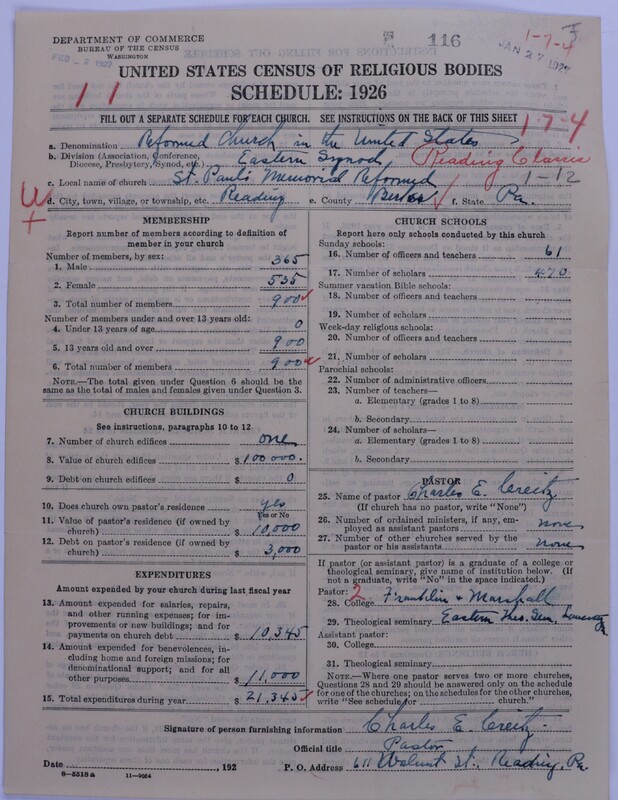 DEPARTMENT OF COMMERCE
BUREAU OF THE CENSUS
WASHINGTON
116
1-7-4
JAN 27 1927
UNITED STATES CENSUS OF RELIGIOUS BODIES
SCHEDULE: 1926
11
FILL OUT A SEPARATE SCHEDULE FOR EACH CHURCH. SEE INSTRUCTIONS ON THE BACK OF THIS SHEET
1-7-4
a. Denomination Reformed Church in the United States
b. Division (Association, Conference, Diocese, Presbytery, Synod, etc.) Eastern Synod, Reading Classis
c. Local name of church St. Paul's Memorial Reformed 1-12
d. City, town, village, or township, etc. Reading e. County Berks f. State Pa.
MEMBERSHIP
Report number of members according to definition of member in your church
Number of members, by sex:
1. Male 365
2. Female 535
3. Total number of members 900
Number of members under and over 13 years old:
4. Under 13 years of age 0
5. 13 years old and over 900
6. Total number of members 900
NOTE.—The total given under Question 6 should be the same as the total of males and females given under Question 3.
CHURCH BUILDINGS
See instructions, paragraphs 10 to 12
7. Number of church edifices one
8. Value of church edifices $100000.
9. Debt on church edifices $ 0
10. Does church own pastor's residence yes
Yes or No
11. Value of pastor's residence (if owned by church) $ 10,000
12. Debt on pastor's residence (if owned by church) $ 3,000
EXPENDITURES
Amount expended by your church during last fiscal year
13. Amount expended for salaries, repairs, and other running expenses; for improvements or new buildings; and for payments on church debt $ 10,345
14. Amount expended for benevolences, including home and foreign missions; for denominational support; and for all other purposes $ 11,000
15. Total expenditures during year $ 21,345
CHURCH SCHOOLS
Report here only schools conducted by this church
Sunday schools:
16. Number of officers and teachers 61
17. Number of scholars 470
Summer vacation Bible schools:
18. Number of officers and teachers
19. Number of scholars
Week-day religious schools:
20. Number of officers and teachers
21. Number of scholars
Parochial schools:
22. Number of administrative officers
23. Number of teachers—
a. Elementary (grades 1 to 8)
b. Secondary
24. Number of scholars—
a. Elementary (grades 1 to 8)
b. Secondary
PASTOR
25. Name of pastor Charles E. Creitz
(If church has no pastor, write "None")
26. Number of ordained ministers, if any, employed as assistant pastors none
27. Number of other churches served by the pastor or his assistants none
If pastor (or assistant pastor) is a graduate of a college or theological seminary, give name of institution below. (If not a graduate, write "No" in the space indicated.)
Pastor: 2
28. College Franklin & Marshall
29. Theological seminary Eastern Theo. Sem.
Assistant pastor:
30. College
31. Theological seminary
NOTE.—Where one pastor serves two or more churches, Questions 28 and 29 should be answered only on the schedule for one of the churches; on the schedules for the other churches, write "See schedule for church."
Signature of person furnishing information Charles E. Creitz
Official title Pastor
Date , 192 P. O. Address 611 Walnut St., Reading, Pa.
8—5518a 11—9064